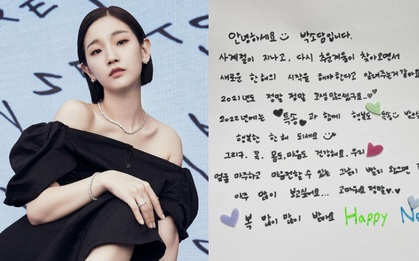 안녕하세요 박소담입니다.
사계절이 지나고, 다시 추운겨울이 찾아오면서
새로운 한해의 시작을 해야한다고 알려주는거 같아요
2021년도 정말 정말 고생많으셨구요.
2022년에는 특송과 함께 행복
행복한 한 해 되세요
그리구.. 꼭. 몸도, 마음도 건강해요. 우리
얼굴 마주하고 마음전할 수 있는 그날이 빨리
아주 많이 보고싶어요... 고마워요 정말
복 많이 많이 받아요 Happy Ne